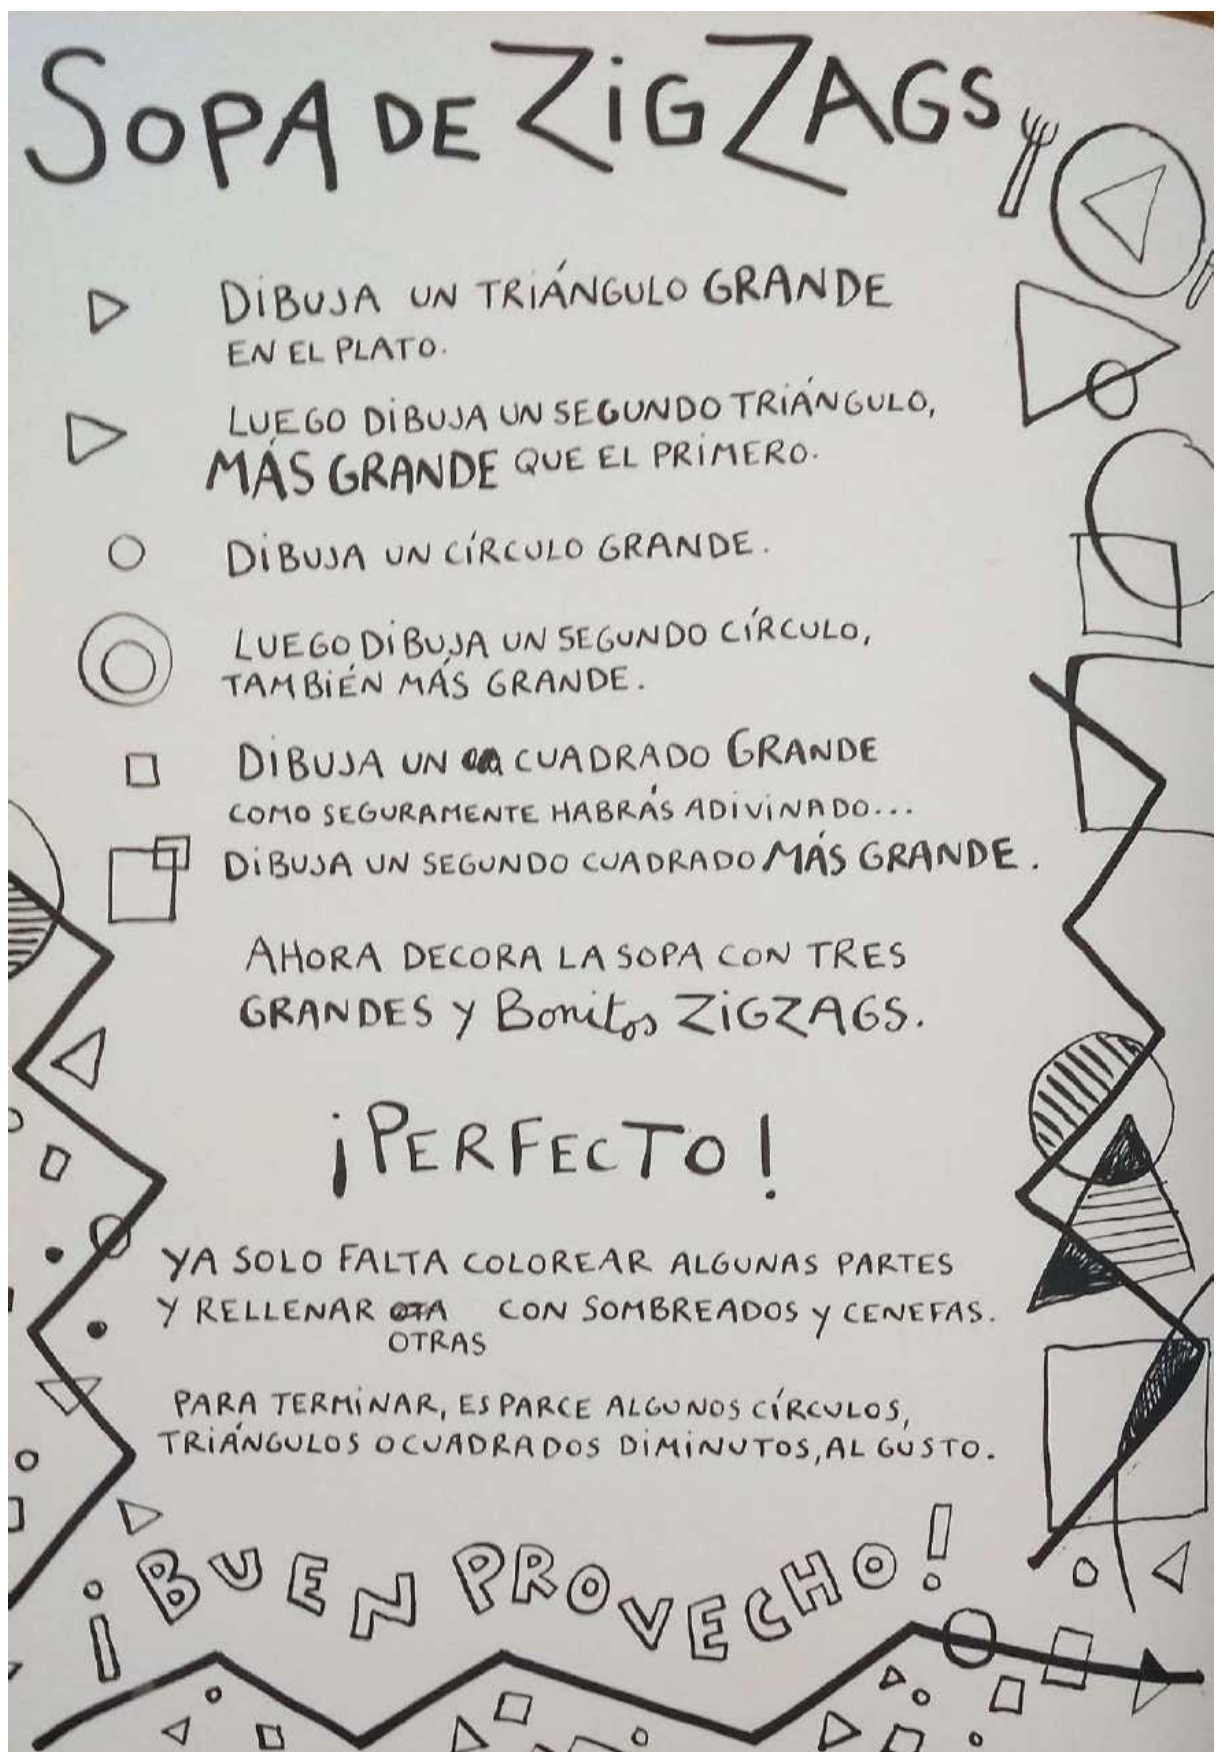 SOPA DE ZiGZAGS
DiBUJA UN TRiÁNGULO GRANDE
EN EL PLATO.
LUEGO DiBUJA UN SEGUNDO TRiÁNGULO,
MÁS GRANDE QUE EL PRiMERO.
DiBUJA UN CÍRCULO GRANDE.
LUEGO DiBUJA UN SEGUNDO CÍRCULO,
TAMBiÉN MÁS GRANDE.
DiBUJA UN CUADRADO GRANDE
COMO SEGURAMENTE HABRÁS ADiViNADO...
DiBUJA UN SEGUNDO CUADRADO MÁS GRANDE.
AHORA DECORA LA SOPA CON TRES
GRANDES Y Bonitos ZiGZAGS.
¡PERFECTO!
YA SOLO FALTA COLOREAR ALGUNAS PARTES
Y RELLENAR CON SOMBREADOS Y CENEFAS.
OTRAS
PARA TERMiNAR, ESPARCE ALGUNOS CÍRCULOS,
TRiÁNGULOS O CUADRADOS DiMiNUTOS, AL GUSTO.
¡BUEN PROVECHO!